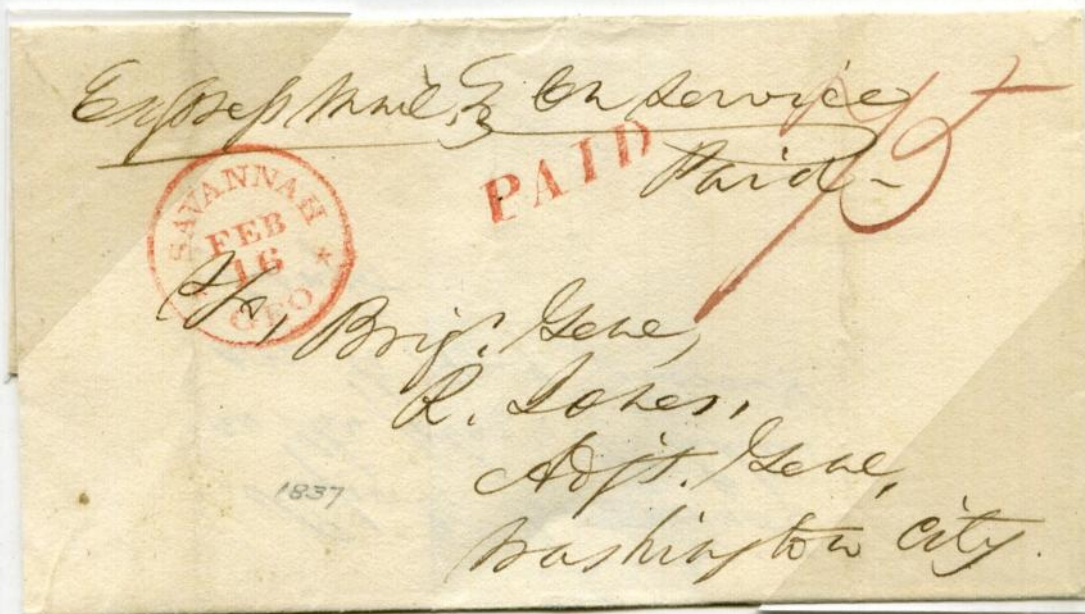 Express Mail, & On Service
Paid
PAID
75
SAVANNAH
FEB
16
GEO
To, Brigr. Genl,
R. Jones,
Adjt. Genl,
Washington City.
1837